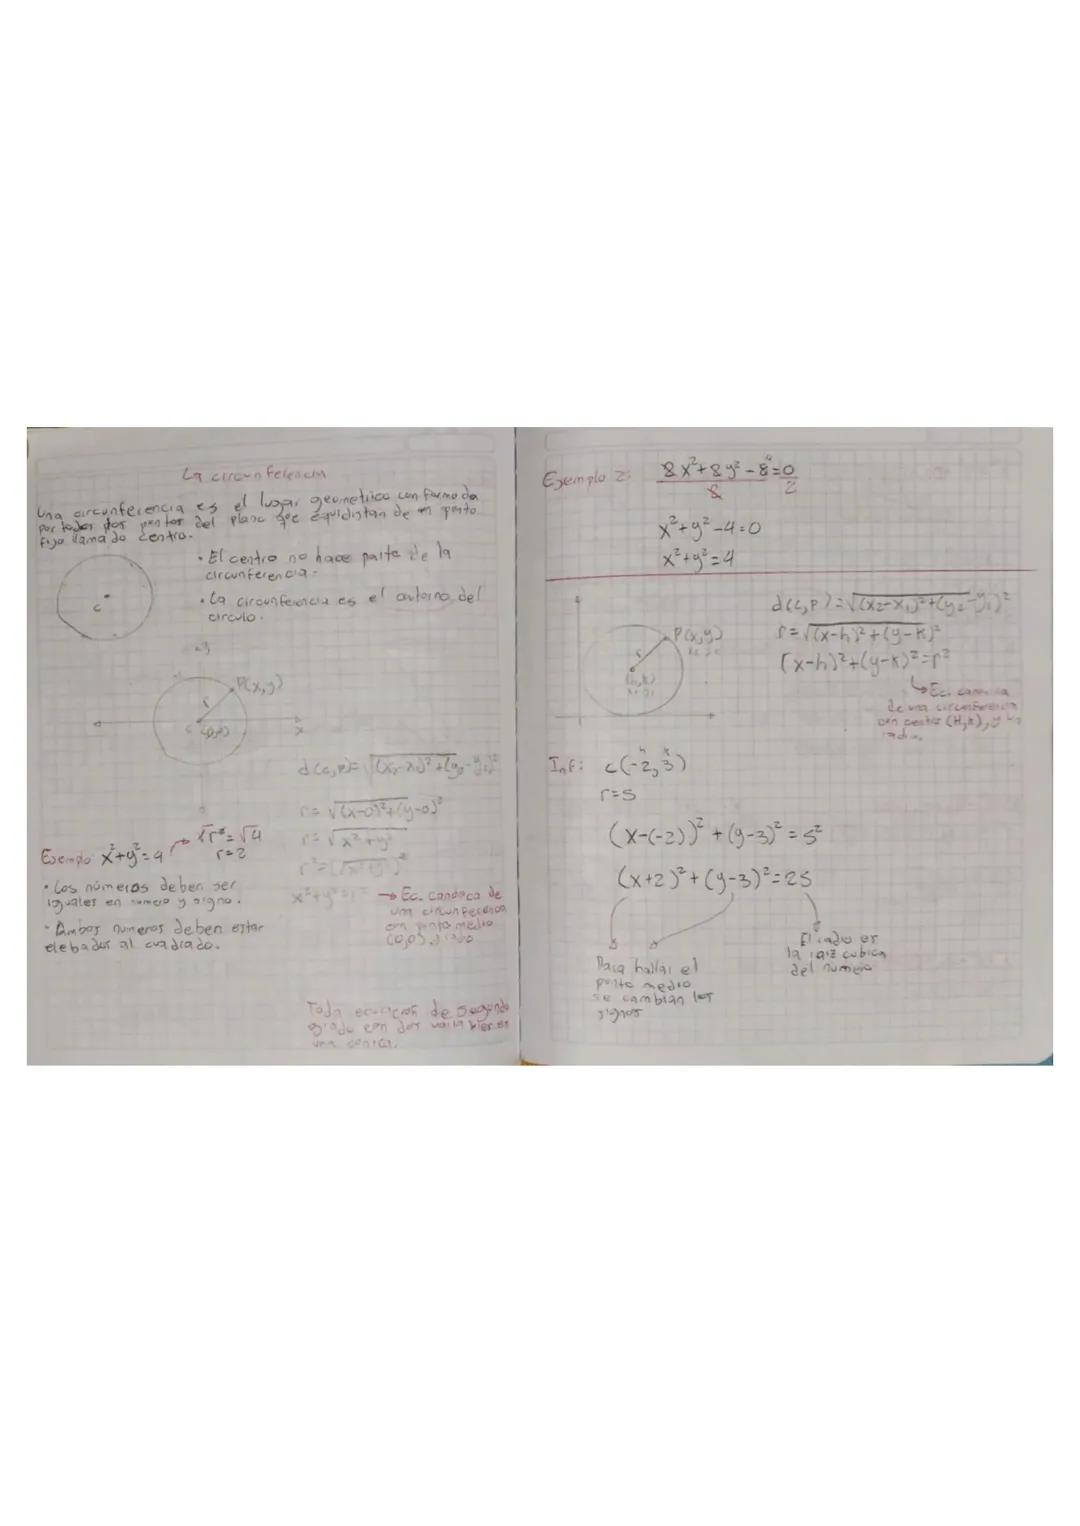 La circunferencia
Una circunferencia es el lugar geometrico conformada
por todos los puntos del plano que equidistan de un punto
fijo llamado centro.
• El centro no hace parte de la
circunferencia.
• La circunferencia es el contorno del
circulo.
C
P(x,y)
r
C (0,0)
x
d(c,p)= √(x₂-x₁)²+(y₂-y₁)²
r= √(x-0)²+(y-0)²
r= √x²+y²
r²=(√x²+y²)²
x²+y²=r² → Ec. canonica de
una circunferencia
con punto medio
(0,0) y radio
Ejemplo x²+y²=4 → √r²=√4
r=2
• Los números deben ser
iguales en numero y signo.
• Ambos numeros deben estar
elebados al cuadrado.
Toda ecuacion de segundo
grado con dos variables es
una conica.
Ejemplo 2: 8x²+8y²-8=0
8 2
x²+y²-4=0
x²+y²=4
P(x,y)
r
(h,k)
d(c,p)=√(x₂-x₁)²+(y₂-y₁)²
r=√(x-h)²+(y-k)²
(x-h)²+(y-k)²=r²
Ec. canonica
de una circunferencia
con centro (H,k), y un
radio.
Inf: c(-2,3)
h k
r=5
(x-(-2))²+(y-3)²=5²
(x+2)²+(y-3)²=25
Para hallar el
punto medio
se cambian los
signos
El radio es
la raiz cubica
del numero